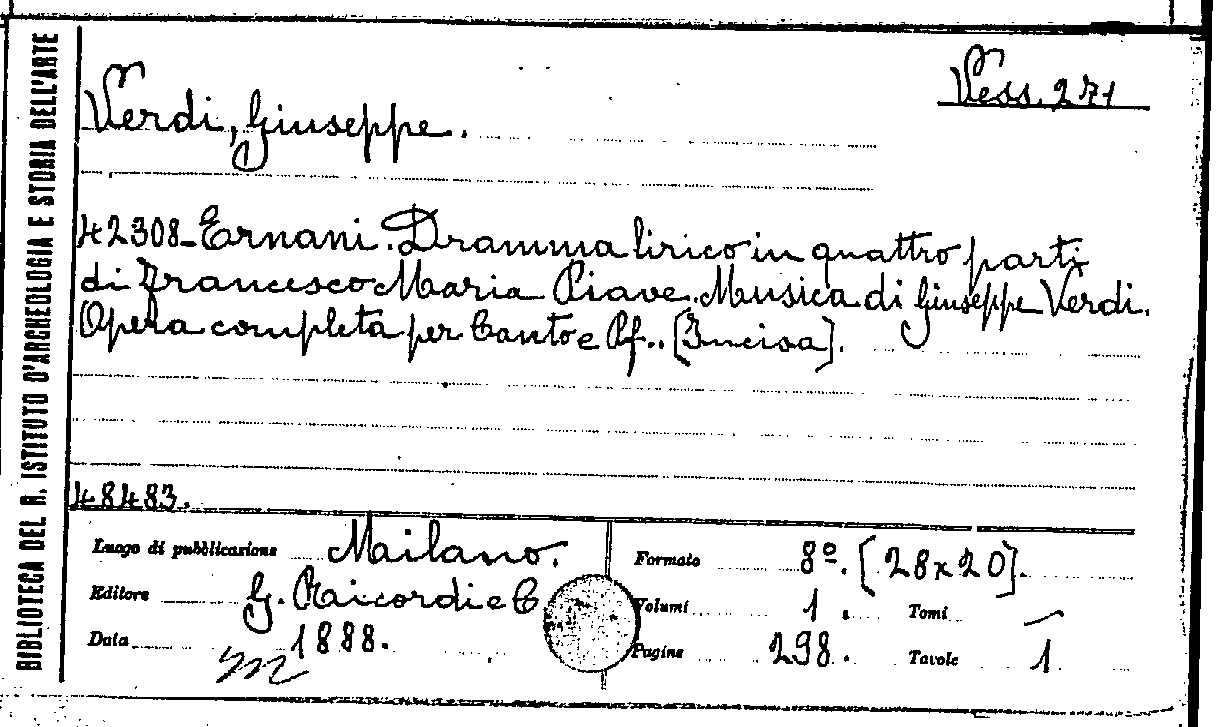 BIBLIOTECA DEL R. ISTITUTO D'ARCHEOLOGIA E STORIA DELL'ARTE
Vess. 271
Verdi, Giuseppe.
42308_Ernani. Dramma lirico in quattro parti
di Francesco Maria Piave. Musica di Giuseppe Verdi.
Opera completa per Canto e Pf.. [Incisa].
48483.
Luogo di pubblicazione Mailano.
Editore G. Raicordi e C
Data 1888.
Formato 8º. [28x20].
Volumi 1. Tomi —
Pagine 298. Tavole 1